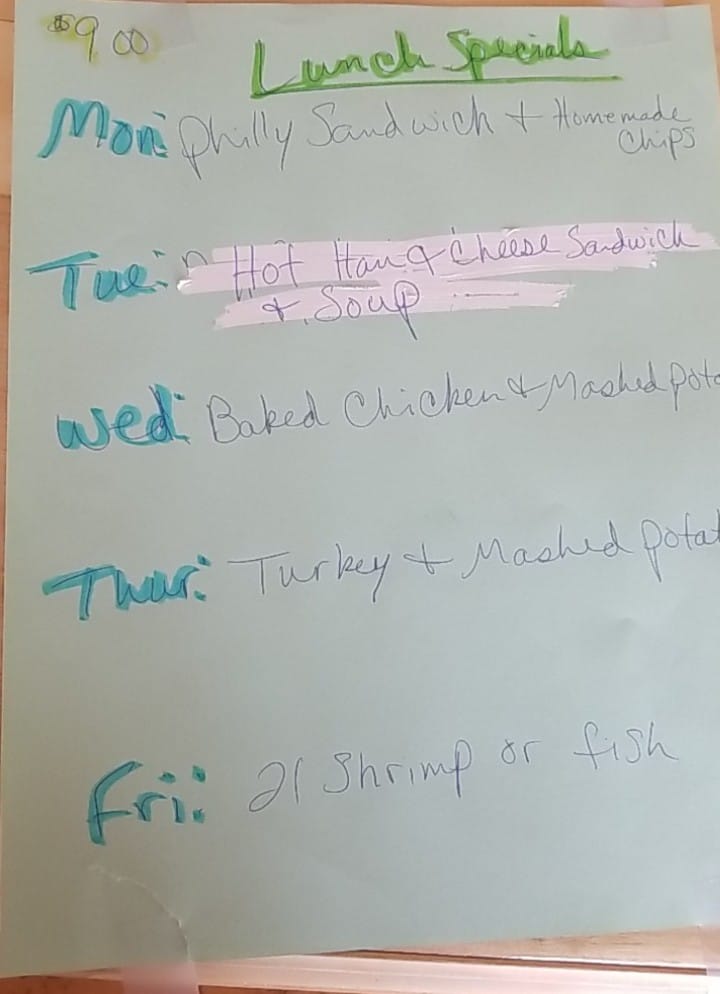 $9.00
Lunch Specials
Mon: Philly Sandwich + Homemade
Chips
Tue: Hot Ham & Cheese Sandwich
& Soup
Wed: Baked Chicken & Mashed pot
Thur: Turkey & Mashed Potat
Fri: 21 Shrimp or fish